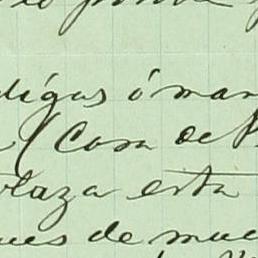 digas ó man
( Casa de P
plaza esta
ues de muc